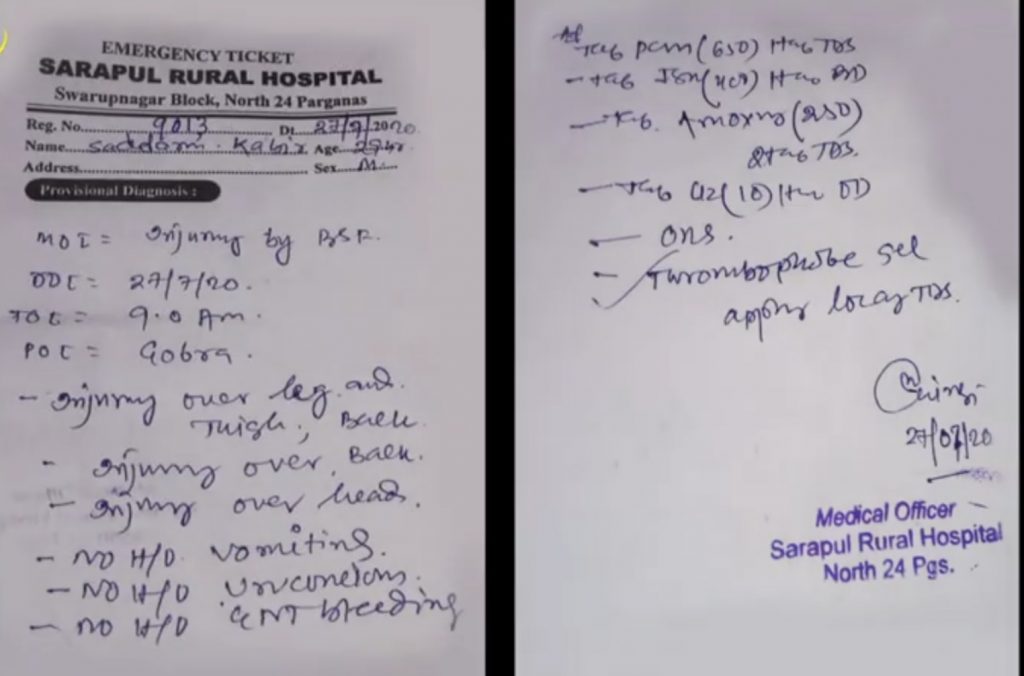 EMERGENCY TICKET
SARAPUL RURAL HOSPITAL
Swarupnagar Block, North 24 Parganas
Reg. No. 9013 Dt. 27/7/2020
Name Saddam Kabir Age
Address Sex M
Provisional Diagnosis :
MOI = Injury by BSF.
DOI = 27/7/20.
TOI = 9.0 Am.
POI = Gobra.
- Injury over leg and
Thigh, Back
- Injury over, Back.
- Injury over head.
- NO H/O vomiting.
- NO H/O
- NO H/O ENT bleeding
Tab pcm (650) TDS
- Tab (40) BD
- Tab. (250)
TDS.
- Tab (10) OD
- ORS.
- Thrombophobe gel
apply local TDS.
27/07/20
Medical Officer
Sarapul Rural Hospital
North 24 Pgs.